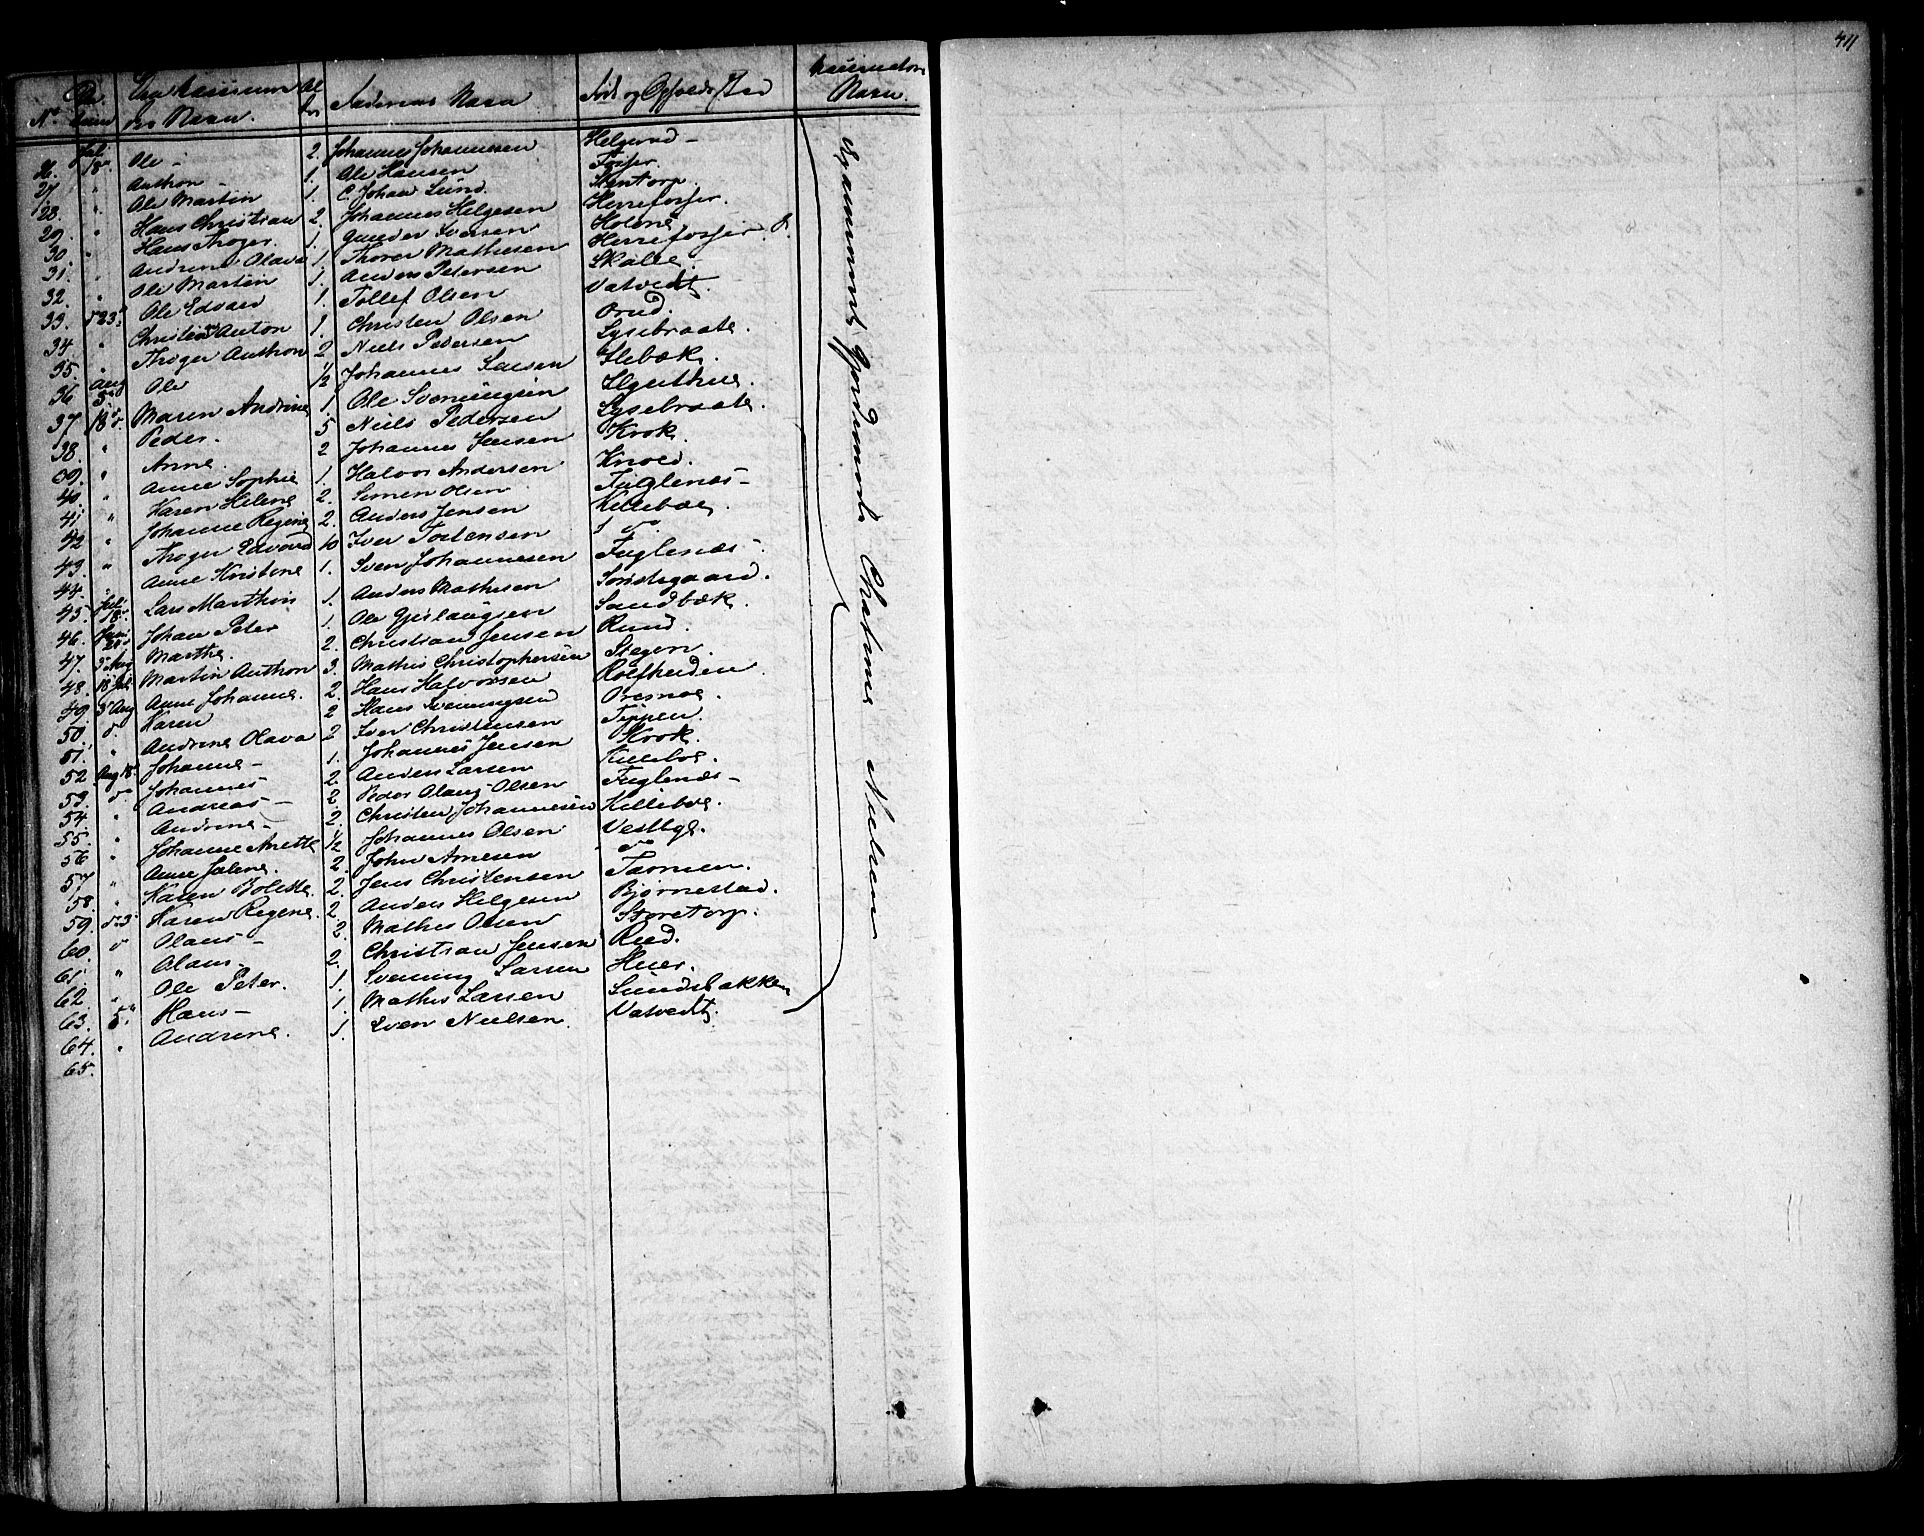 411
No. Datum Den Vaccinere- des Navn. Al- der Faderens Navn Føde og Opholds Sted Vaccinators Navn.
26. Jul 18. Ole - 2. Johannes Johannesen Helgerud -
27. " Anthon - 1. Ole Hansen Fosser.
28. " Ole Martin 1. C. Johan Lund. Stentorp.
29. " Hans Christian 2. Johannes Helgesen Herrefosser.
30. " Hans Thoger. 1. Gunder Iversen Holene
31. " Andrine Olava 1. Thorer Mathisen Herrefosser.
32. " Ole Martin 1. Anders Petersen
33. Ole Edvard 1. Tollef Olsen Vatvedt.
34. " Christian Anton 1. Christen Olsen Orud.
35. " Thoger Anthon 2 Niels Pedersen Lysebraate.
36 Aug 5 Ole 1/2 Johannes Larsen Slebæk.
37 18 Maren Andrine 1. Ole
38. " Peder. 5 Niels Pedersen Lysebraate.
39. " Anne. 2 Johannes Jensen Krok.
40. " Anne Sophie 1. Halvor Andersen
41 " Karen Helene 2. Simen Olsen Fuglenæs -
42 " Johanne Regine 2. Anders Jensen Killeboe.
43. " Thoger Edvard 10 Iver Tostensen do
44. " Anne Kristine 1. Sven Johannesen Fuglenæs -
45. Jul 18. Lars Marthin 1. Anders Mathisen
46. Juni 21 Johan Peter 1. Ole Gislaugsen Sandbæk.
47. 5 Aug Marthe. 2. Christian Jensen Ruud.
48. 18 Jul Martin Anthon 3. Mathis Christophersen Stegen.
49. 5 Aug Anne Johanne. 2. Hans Halvorsen Rolfheiden
50. Karen 2 Hans Sveningsen
51. " Andrine Olava 2 Iver Christensen Tippen.
52 Aug 18. Johanne - 1. Johannes Jensen Krok.
53. do Johannes 2. Anders Larsen Killeboe.
54. " Andreas - 2 Peder Olaus Olsen Fuglenæs -
55. " Andrine - 2. Christen Johannesen Killeboe.
56 " Johanne Anette 1/2 Johannes Olsen Vestbye.
57 " Anne 2. John Arnesen do
58. " Karen Bolette. 2. Jens Christensen
59. Karen Regine. 2 Anders Helgesen Bjørnestad.
60. Olaus - 2. Mathis Olsen Storetorp.
61. " Olaus - 2. Christian Jensen Rud.
62 " Ole Peter. 1. Svening Larsen Huer.
63. 5 Hans - 1. Mathis Larsen Sundsbakken
64. " Andrine. 1. Sven Nielsen. Vatvedt.
65.
Examinerede Gjordemoder Cathrine Nielsen